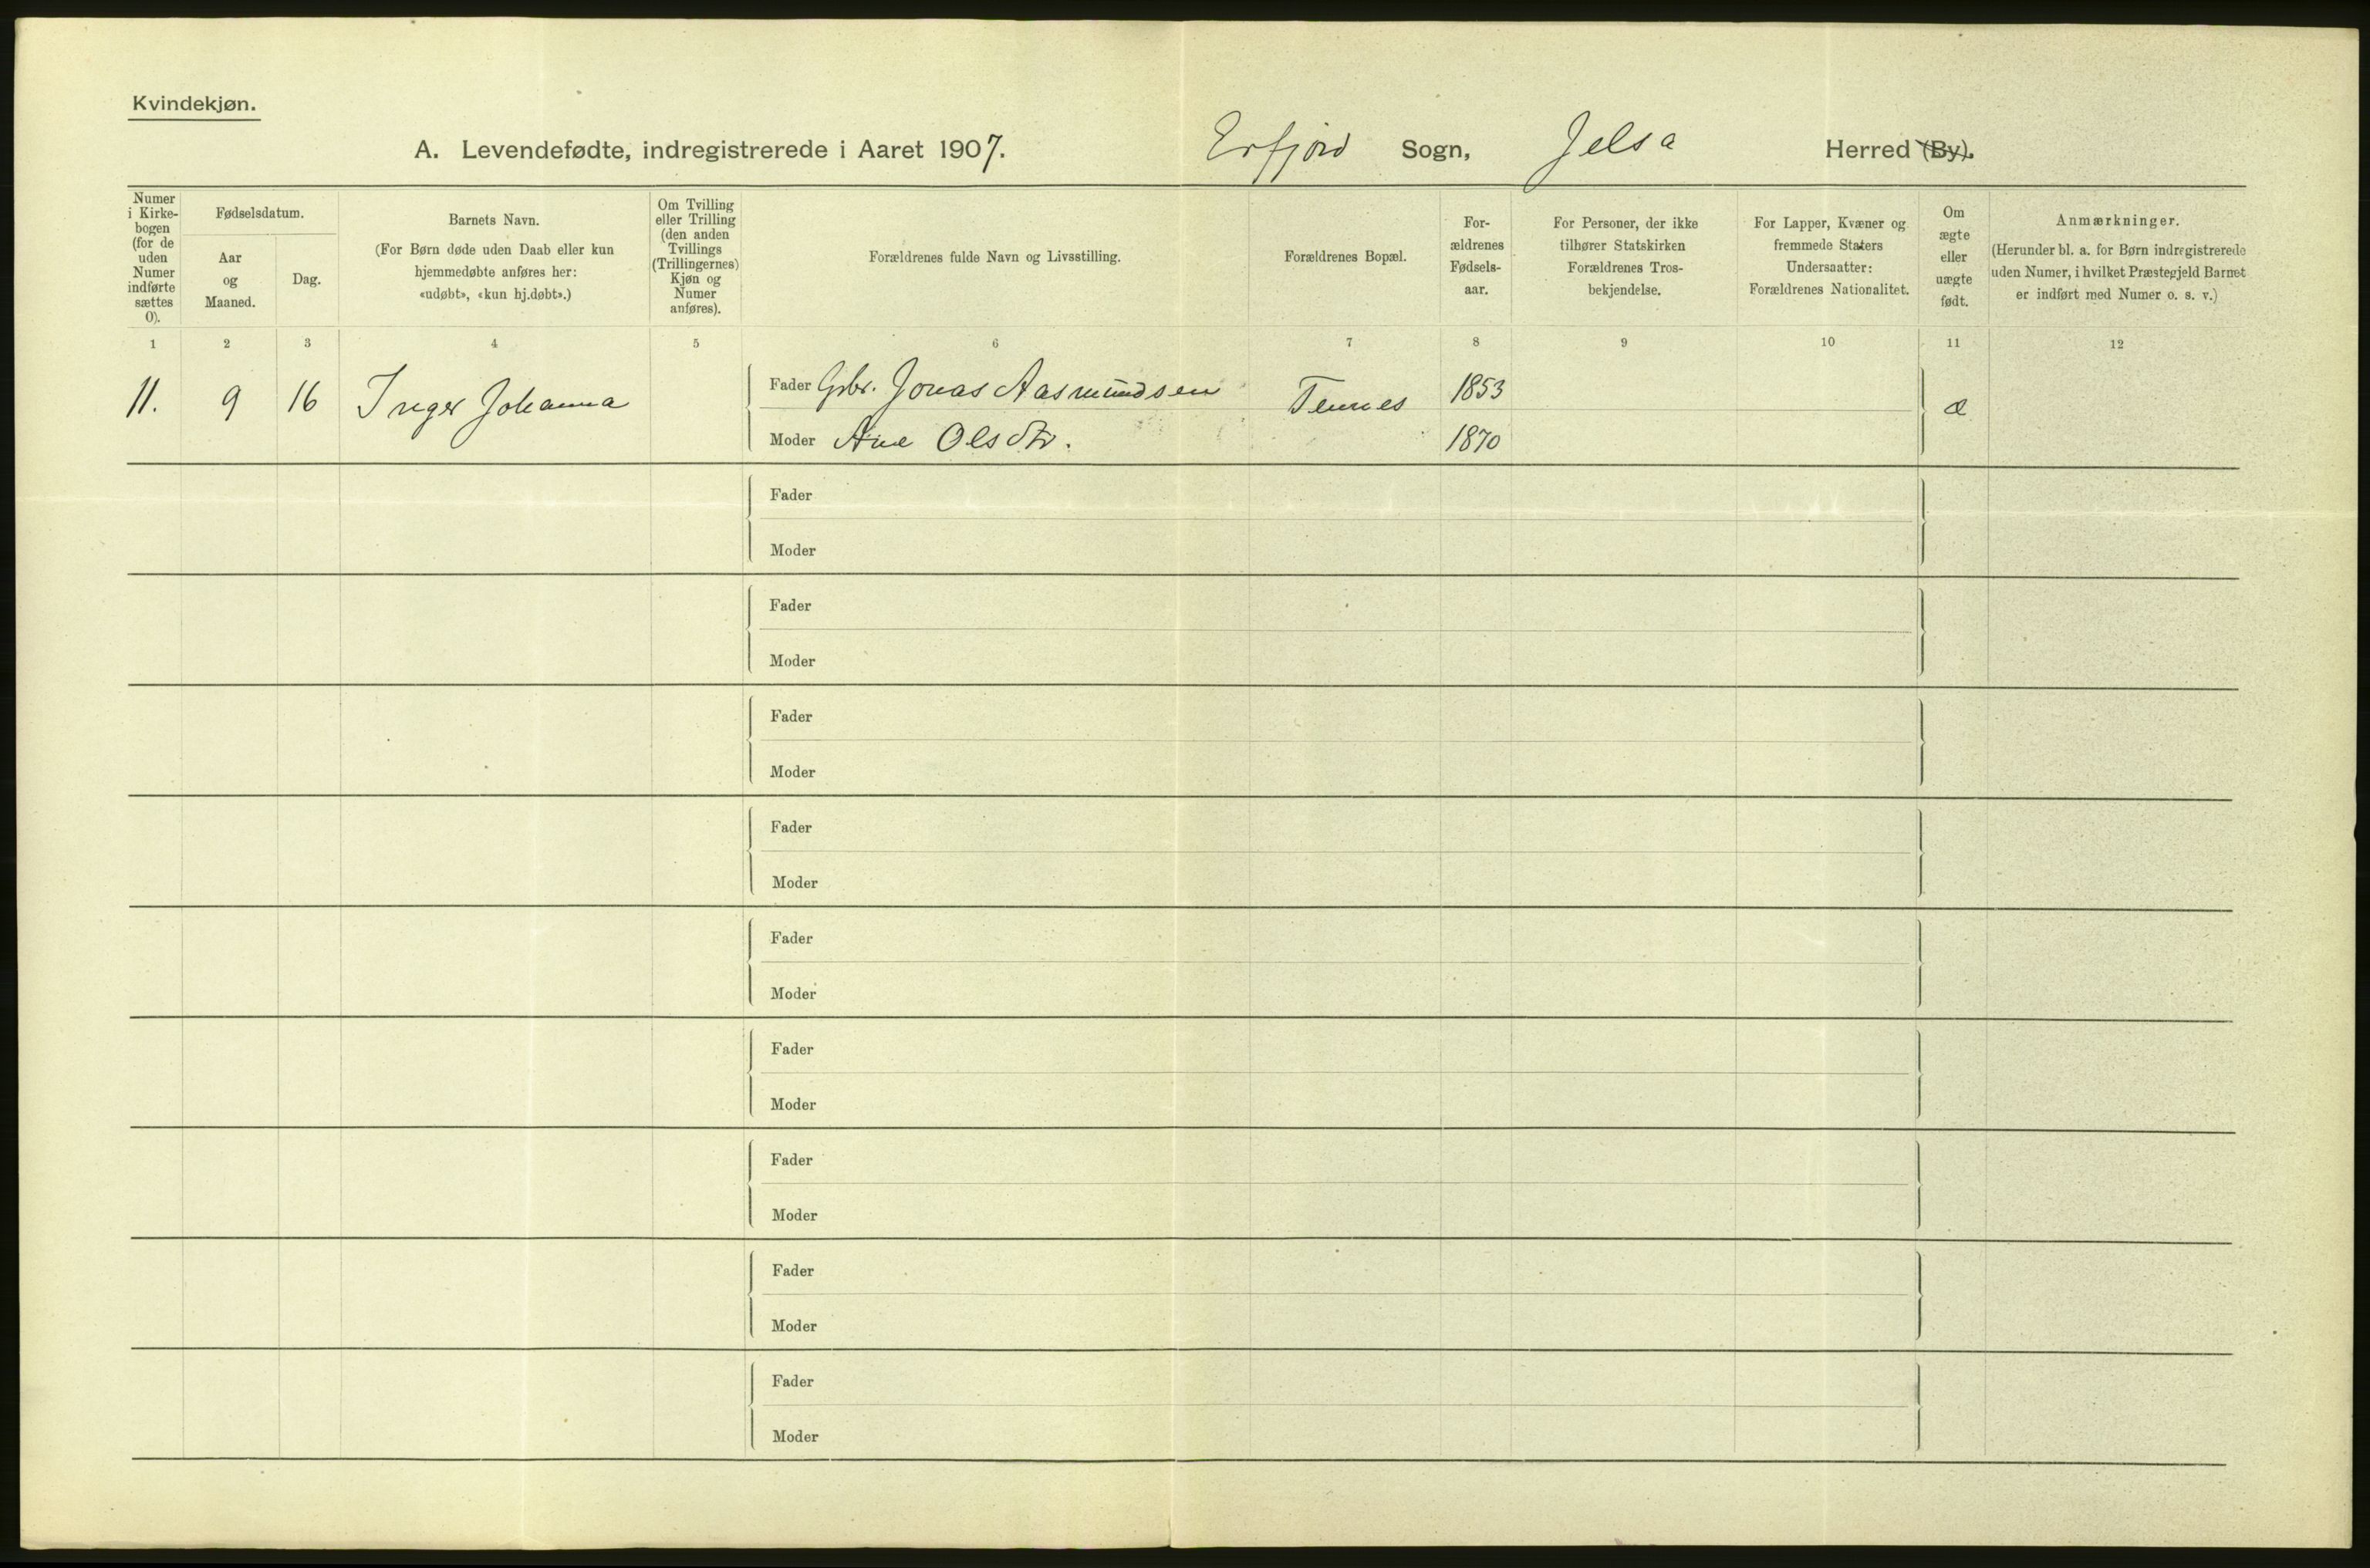 Kvindekjøn.
A. Levendefødte, indregistrerede i Aaret 1907. Erfjord Sogn, Jelsa Herred (By).
Numer
i Kirke-
bogen
(for de
uden
Numer
indførte
sættes
0).
Fødselsdatum.
Aar
og
Maaned.
Dag.
Barnets Navn.
(For Børn døde uden Daab eller kun
hjemmedøbte anføres her:
«udøbt», «kun hj.døbt».)
Om Tvilling
eller Trilling
(den anden
Tvillings
(Trillingernes)
Kjøn og
Numer
anføres).
Forældrenes fulde Navn og Livsstilling.
Forældrenes Bopæl.
For-
ældrenes
Fødsels-
aar.
For Personer, der ikke
tilhører Statskirken
Forældrenes Tros-
bekjendelse.
For Lapper, Kvæner og
fremmede Staters
Undersaatter:
Forældrenes Nationalitet.
Om
ægte
eller
uægte
født.
Anmærkninger.
(Herunder bl. a. for Børn indregistrerede
uden Numer, i hvilket Præstegjeld Barnet
er indført med Numer o. s. v.)
1 2 3 4 5 6 7 8 9 10 11 12
11. 9 16 Inger Johanna Fader Gbr. Jonas Aasmundsen Tennes 1853 æ
Moder Ane Olsdtr. 1870
Fader
Moder
Fader
Moder
Fader
Moder
Fader
Moder
Fader
Moder
Fader
Moder
Fader
Moder
Fader
Moder
Fader
Moder